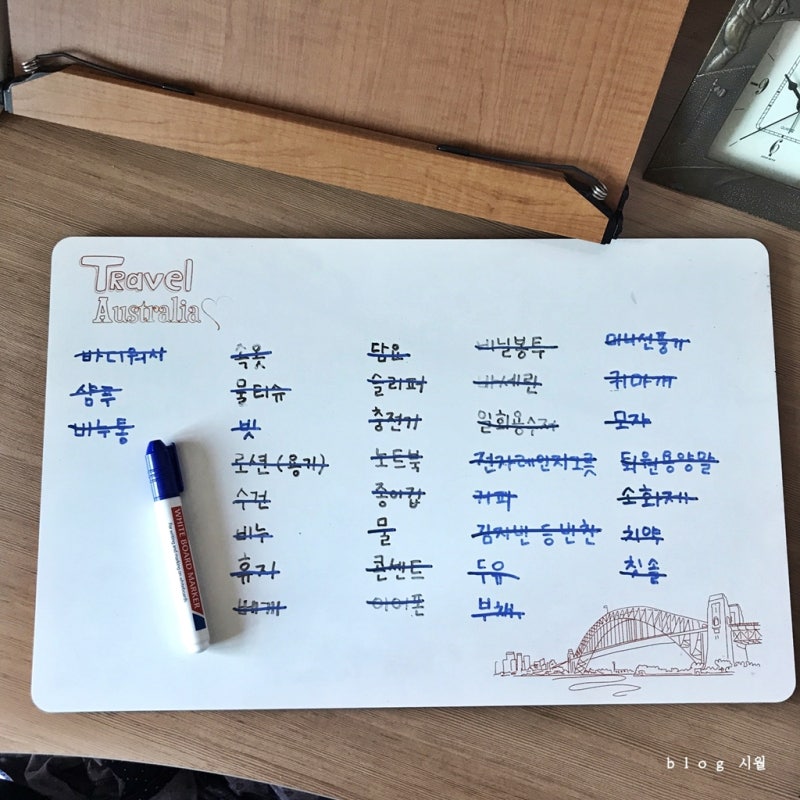 Travel
Australia
바디워시
샴푸
비누통
속옷
물티슈
빗
로션 (용기)
수건
비누
휴지
베개
담요
슬리퍼
충전기
노트북
종이컵
물
콘센트
이어폰
비닐봉투
바세린
일회용수저
전자레인지그릇
커피
김자반 등 반찬
두유
부채
미니선풍기
귀마개
모자
퇴원용양말
소화제
치약
칫솔
WHITE BOARD MARKER
6
blog 시월